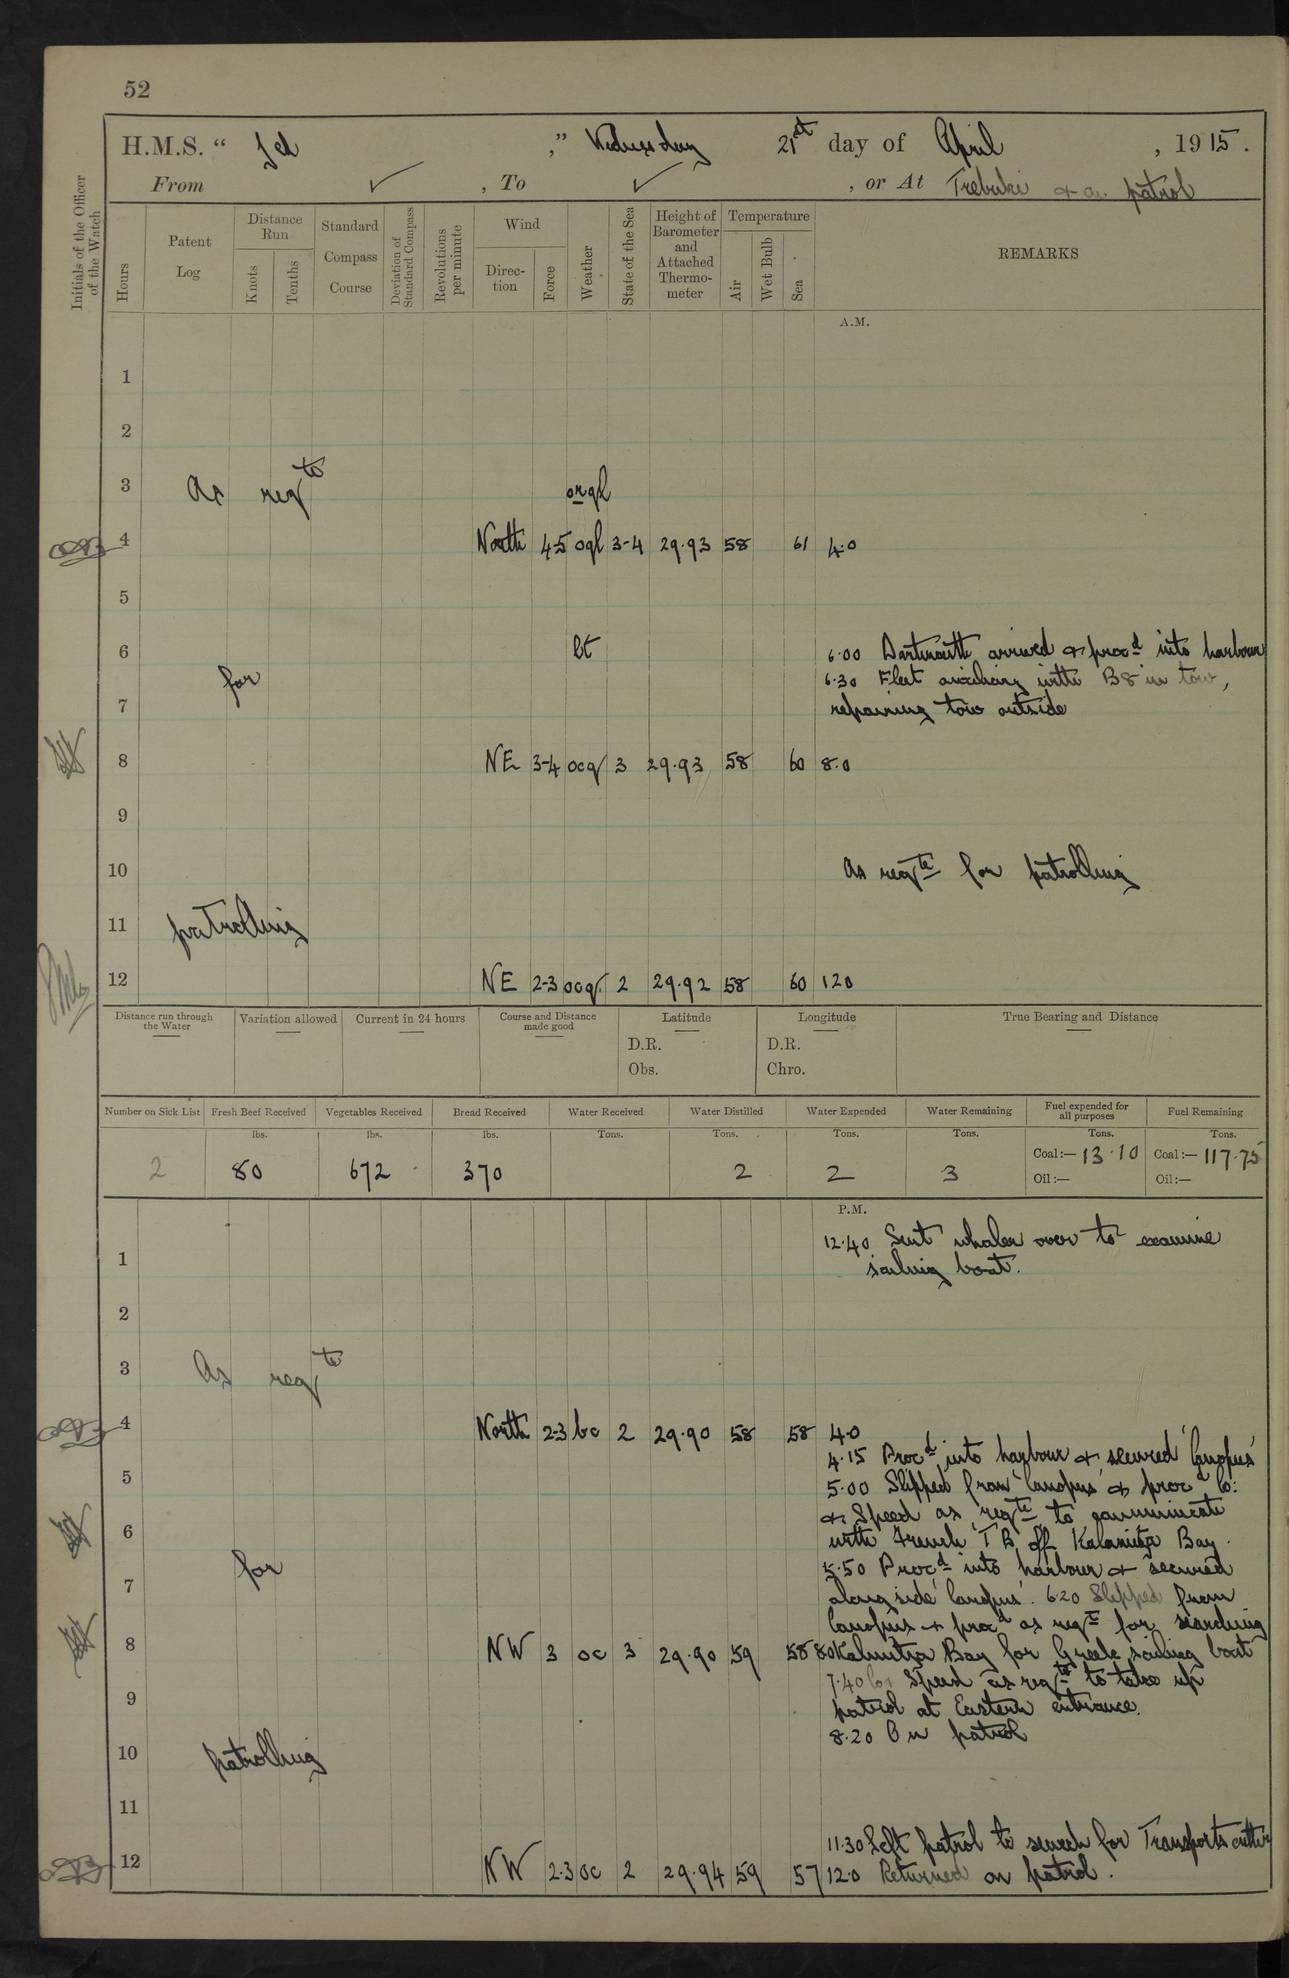 52
H.M.S. " Jed ," Wednesday 21st day of April , 1915.
From ✓ , To ✓ , or At Trebuki & on patrol
Initials of the Officer of the Watch
Hours
Patent Log
Distance Run
Knots
Tenths
Standard Compass Course
Deviation of Standard Compass
Revolutions per minute
Wind
Direction
Force
Weather
State of the Sea
Height of Barometer and Attached Thermometer
Temperature
Air
Wet Bulb
Sea
REMARKS
A.M.
1
2
3 As reqte orql
4 North 4-5 oql 3-4 29.93 58 61 4.0
5
6 bt 6.00 Dartmouth arrived & procd into harbour
for 6.30 Fleet auxiliary with B8 in tow,
7 repairing tow outside
8 NE 3-4 ocq 3 29.93 58 60 8.0
9
10 As reqte for patrolling
11 patrolling
12 NE 2-3 ocq. 2 29.92 58 60 12 0
Distance run through the Water
Variation allowed
Current in 24 hours
Course and Distance made good
Latitude
D.R.
Obs.
Longitude
D.R.
Chro.
True Bearing and Distance
Number on Sick List Fresh Beef Received Vegetables Received Bread Received Water Received Water Distilled Water Expended Water Remaining Fuel expended for all purposes Fuel Remaining
lbs. lbs. lbs. Tons. Tons. Tons. Tons. Tons. Tons.
2 80 672 370 2 2 3 Coal:— 13.10 Coal:— 117.75
Oil:— Oil:—
P.M.
12.40 Sent whaler over to examine
1 sailing boat.
2
3 As reqte
4 North 2-3 bc 2 29.90 58 58 4.0
4.15 Procd into harbour & secured 'Canopus'
5 5.00 Slipped from 'Canopus' & procd Co:
& Speed as reqte to communicate
6 with French TB off Kalamitza Bay.
for 5.50 Procd into harbour & secured
7 alongside 'Canopus'. 6.20 Slipped from
Canopus & procd as reqte for searching
8 NW 3 oc 3 29.90 59 58 8.0 Kalmitza Bay for Greek sailing boat
7.40 Co & Speed as reqte to take up
9 patrol at Eastern entrance.
8.20 On patrol
10 patrolling
11
11.30 Left patrol to search for Transports cutter
12 NW 2.3 oc 2 29.94 59 57 12.0 Returned on patrol.